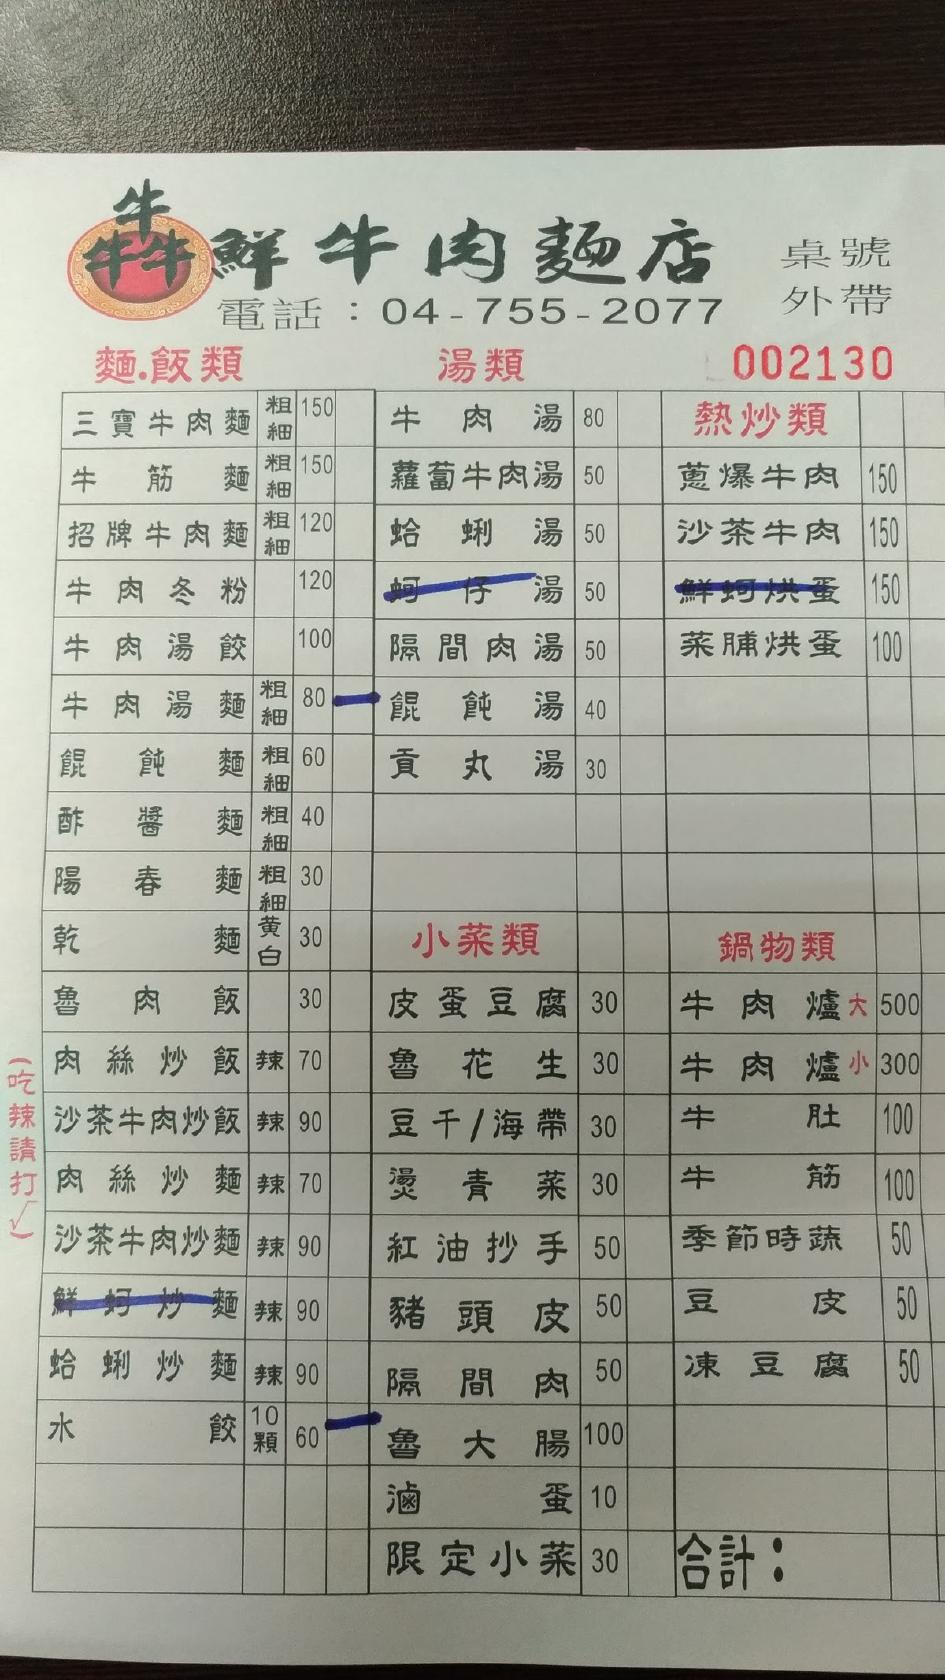 牛
牛牛 鮮牛肉麵店
桌號
外帶
電話：04-755-2077
002130
麵.飯類
三寶牛肉麵 粗 細 150
牛筋麵 粗 細 150
招牌牛肉麵 粗 細 120
牛肉冬粉 120
牛肉湯餃 100
牛肉湯麵 粗 細 80
餛飩麵 粗 細 60
酢醬麵 粗 細 40
陽春麵 粗 細 30
乾麵 黃 白 30
魯肉飯 30
肉絲炒飯 辣 70
沙茶牛肉炒飯 辣 90
肉絲炒麵 辣 70
沙茶牛肉炒麵 辣 90
鮮蚵炒麵 辣 90
蛤蜊炒麵 辣 90
水餃 10顆 60
(吃辣請打✓)
湯類
牛肉湯 80
蘿蔔牛肉湯 50
蛤蜊湯 50
蚵仔湯 50
隔間肉湯 50
餛飩湯 40
貢丸湯 30
小菜類
皮蛋豆腐 30
魯花生 30
豆干/海帶 30
燙青菜 30
紅油抄手 50
豬頭皮 50
隔間肉 50
魯大腸 100
滷蛋 10
限定小菜 30
熱炒類
蔥爆牛肉 150
沙茶牛肉 150
鮮蚵烘蛋 150
菜脯烘蛋 100
鍋物類
牛肉爐大 500
牛肉爐小 300
牛肚 100
牛筋 100
季節時蔬 50
豆皮 50
凍豆腐 50
合計：